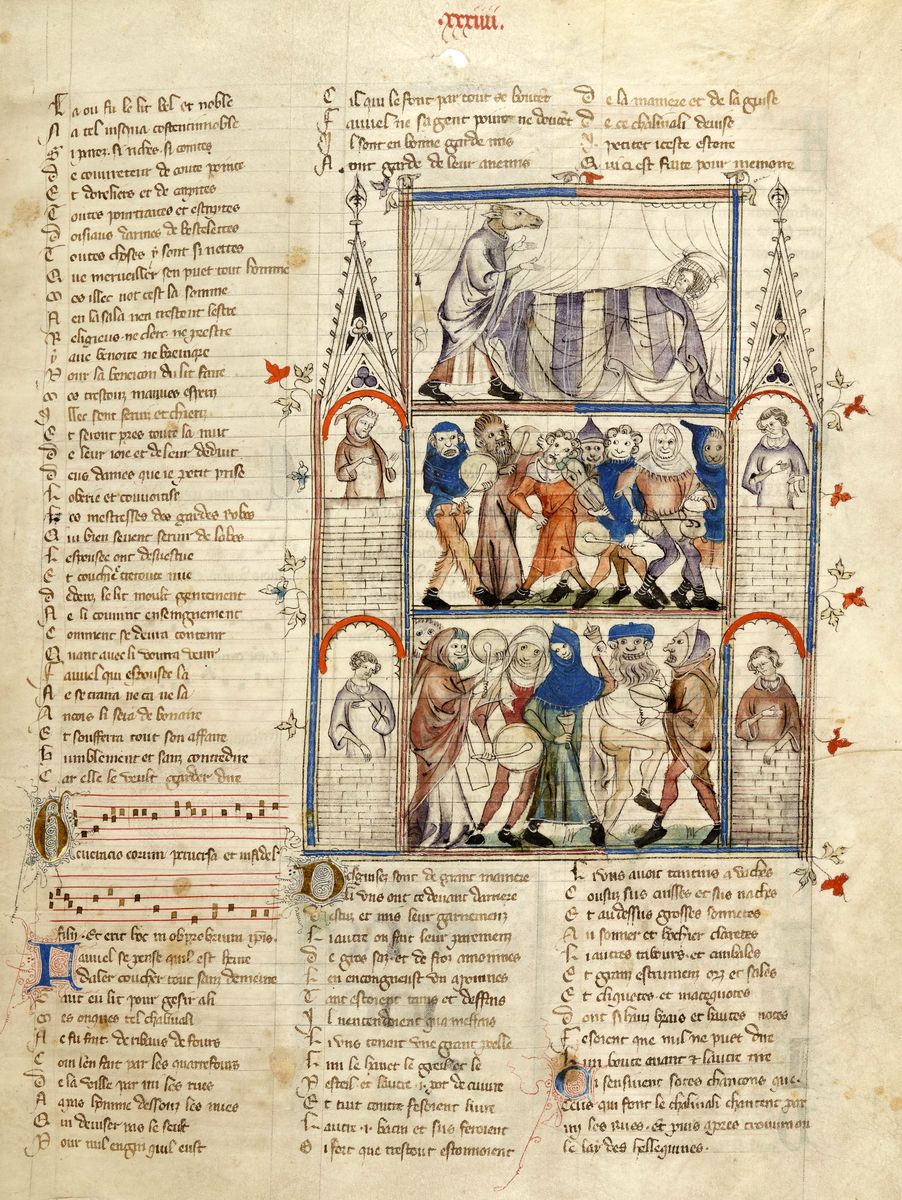 .xxxiiii.
La ou fu le lit bel et noble
A tel
Si parez si riches si cointes
De couvreteur de coute pointe
Et doreliers et de carpites
Toutes pourtraites et escriptes
Doisiaus darmes de bestelettes
Toutes choses y sont si nettes
Que merveiller sen puet tout homme
illec not cest la somme
En la sale nen trestout lestre
Religieus ne clerc ne prestre
aue benoite ne
Pour la beneicon du lit faire
mauves
Illec sont serm et chierm
Et seront pres toute la nuit
De leur ioie et de leur deduit
Deus dames que ie petit prise
Loberie et couvoitise
mestresses des gardes robes
Qui bien sevent servir de lobes
Lespousee ont desvestue
Et couchie trestoute nue
Dedenz le lit moult gentement
Et li enseingnement
Comment se devra contenir
Quant avec li voudra venir
Fauvel qui espousee la
Ne se traia ne ca ne la
Ancois li sera de bonaire
Et souffera tout son affaire
Humblement et sanz contredire
Car elle le veult garder dire
eorum perversa et infidelis
filii. Et erit hoc in obprobrium ipis.
Fauvel se pense quil est heure
Daler coucher tout sanz demeure
Vint eu lit pour gesir a li
Mes onques tel chalivali
Ne fu fait de ribaus de fours
Com len fait par les quarrefours
De la ville par mi les rues
Apres homme dessouz les nues
Qui deviser mie le seust
Pour nul engin quil eust
Cil qui le font par tout se boutent
Fauvel ne sa gent point ne doutent
Il sont en bonne garde mis
Nont garde de leur anemis
De la maniere et de la guise
De ce chalivali devise
petiter iceste estoire
Qui ci est faite pour memoire
Desguisez sont de grant maniere
Li uns ont ce devant darriere
Vestuz et mis leur garnemenz
Li autre ont fait leur paremenz
De gros saz et de froz a moinnes
Len en congneust un a poinnes
Tant estoient tains et deffais
Il nentendoient qua meffais
Li uns tenoit une grant poelle
Lun le havet le greil et le
Pesteil et lautre .i. pot de cuivre
Et tuit contrefesoient livre
Lautre .i. bacin et sus feroient
Si fort que trestout estonnoient
Li uns avoit tantins a vaches
Cousuz sus cuisses et sus naches
Et au dessus grosses sonnetes
Au sonner et hochier claretes
Li autres tabours et cimbales
Et granz estrumenz orz et sales
Et cliquetes et macequotes
Dont si hauz brais et hautes notes
Fesoient que nul ne puet dire
Lun boute avant et lautre tire
Ci sensivent sotes chancons que
Ceus qui font le chalivali chantent par
mi les rues. Et puis apres trouvera on
le lay des hellequines.